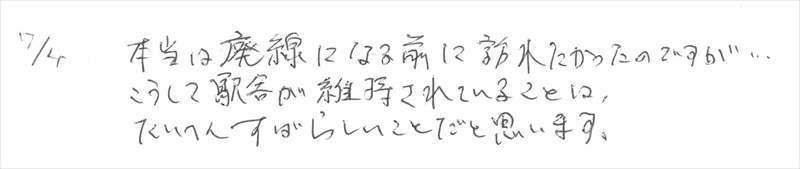 7/4 本当は廃線になる前に訪れたかったのですが…
こうして駅舎が維持されていることは、
たいへんすばらしいことだと思います。